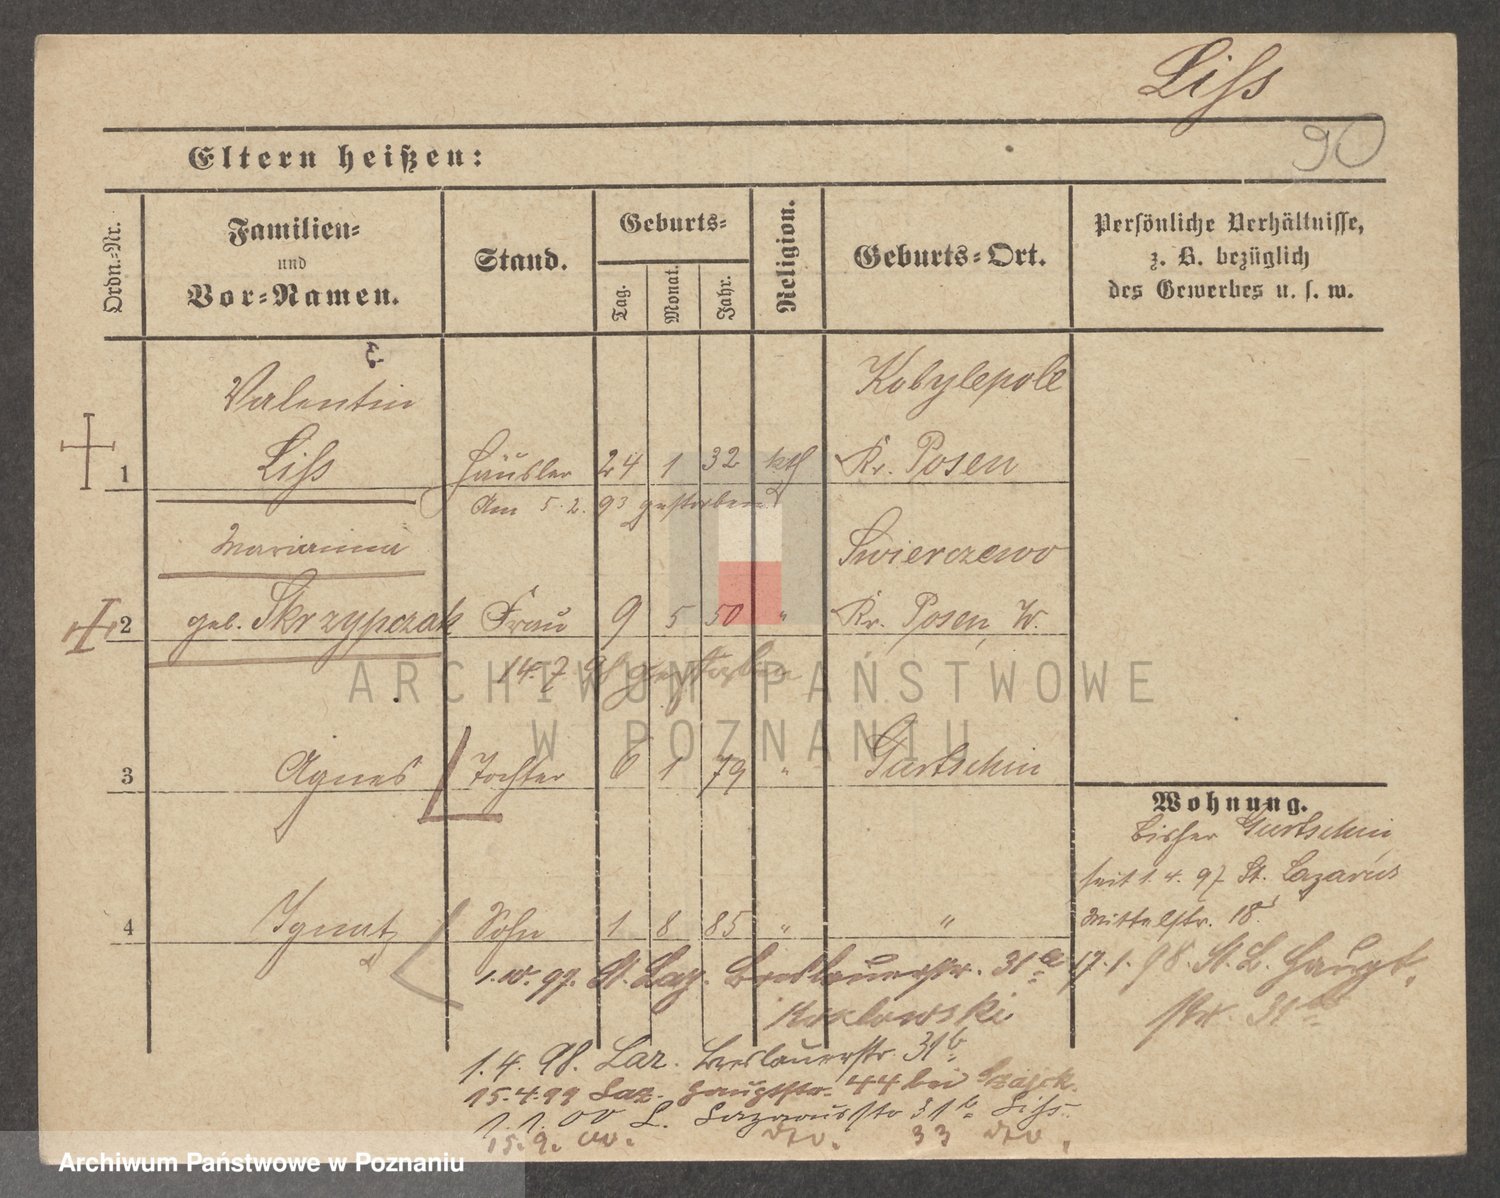 Liſs
90
Eltern heißen:
Ordn.-Nr.
Familien-
und
Vor-Namen.
Stand.
Geburts-
Tag.
Monat.
Jahr.
Religion.
Geburts-Ort.
Persönliche Verhältnisse,
z. B. bezüglich
des Gewerbes u. s. w.
Valentin Kobylepole
1 Liſs Häusler 24 1 32 kth Kr. Posen
Am 5.2.93 gestorben
Marianna Swierczewo
2 geb. Skrzypczak Frau 9 5 50 " Kr. Posen, W.
14.7. gestorben
ARCHIWUM PAŃSTWOWE
W POZNANIU
3 Agnes Tochter 6 1 79 " Gurtschin
Wohnung.
bisher Gurtschin
seit 1.4.97 St. Lazarus
4 Ignatz Sohn 1 8 85 " " Mittelstr. 18
1.10.97. St. Laz. Breslauerstr. 31a 17.1.98. St. L. Haupt
Kozlowski str. 31
1.4.98. Laz. Breslauerstr. 31b
15.4.99 Laz. Hauptstr. 44 bei
1.1.00 L. Lazarusstr 31b Liſs
15.9.00. dto. 33 dto.
Archiwum Państwowe w Poznaniu